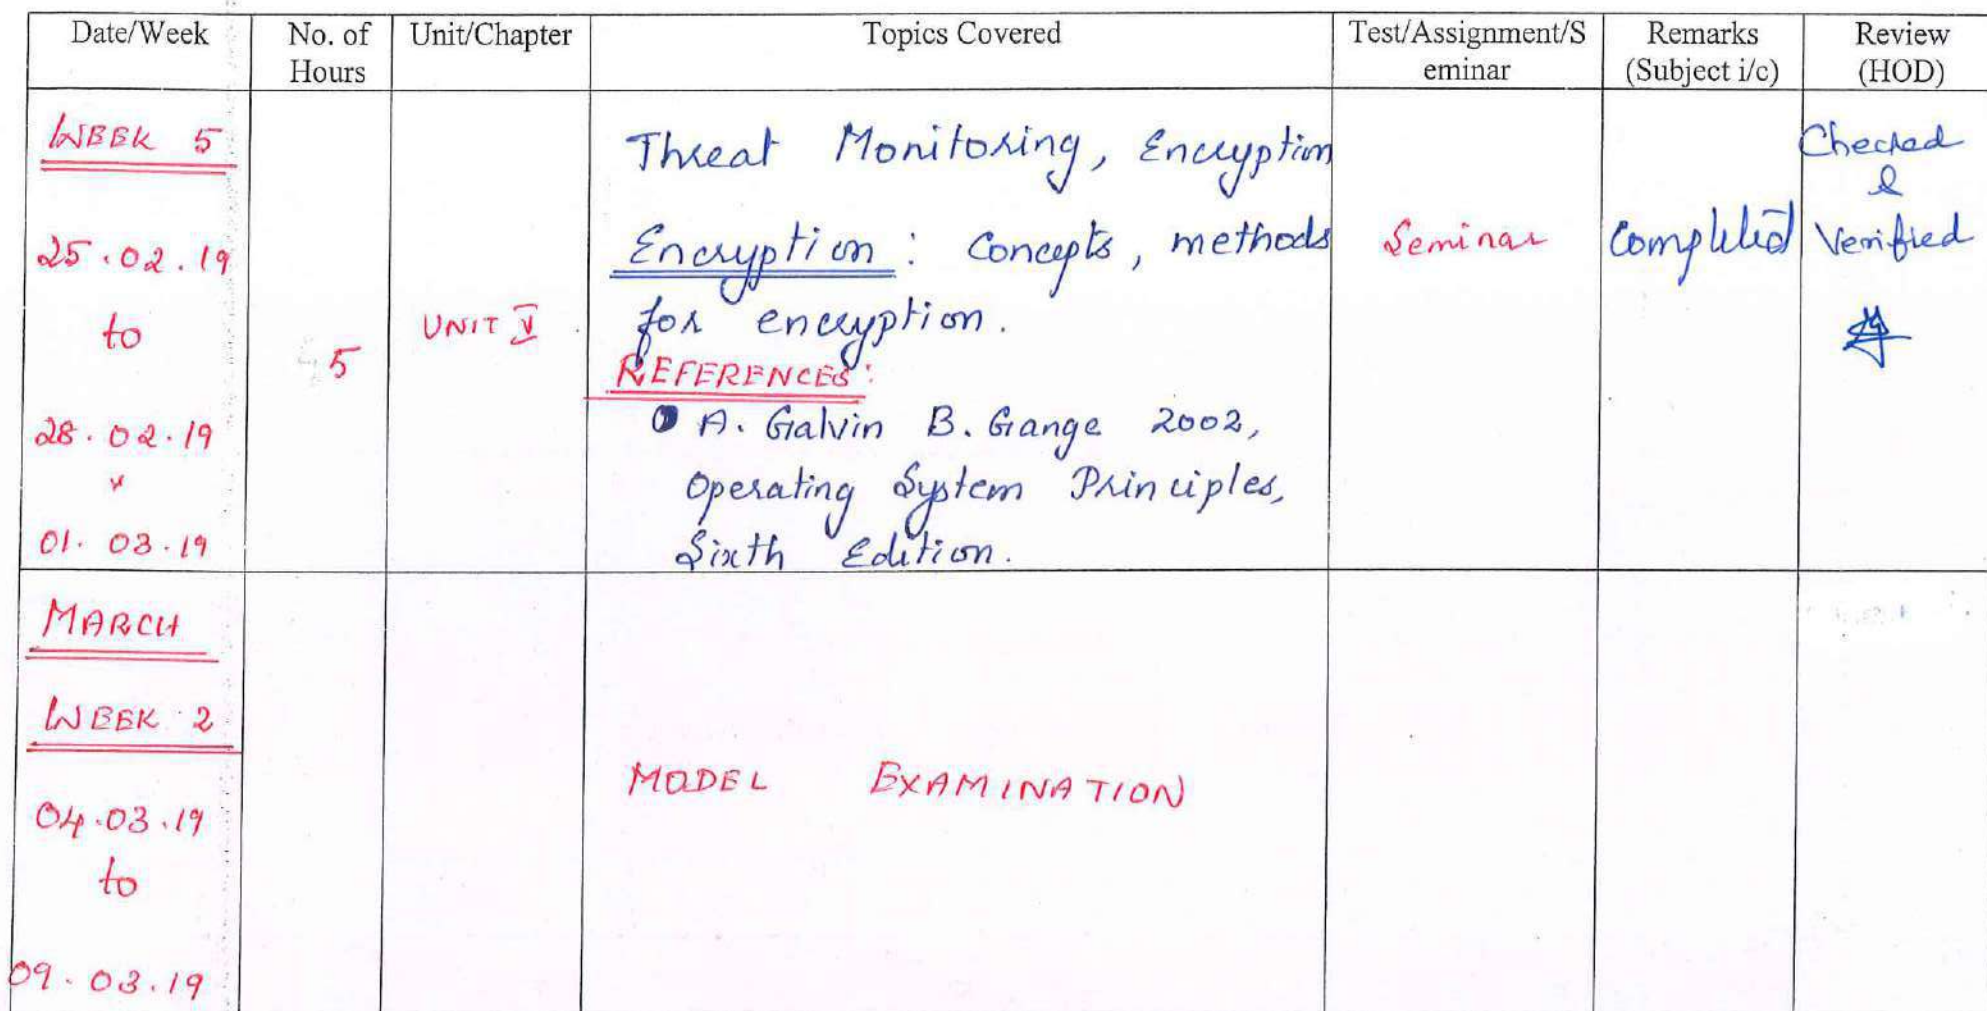 Date/Week No. of Hours Unit/Chapter Topics Covered Test/Assignment/S eminar Remarks (Subject i/c) Review (HOD)
WEEK 5
25.02.19
to
28.02.19
01.03.19
5
UNIT V
Threat Monitoring, Encryption
Encryption : Concepts, methods
for encryption.
REFERENCES:
A. Galvin B. Gange 2002,
Operating System Principles,
Sixth Edition.
Seminar
Completed
Checked
&
Verified
MARCH
WEEK 2
04.03.19
to
09.03.19
MODEL EXAMINATION